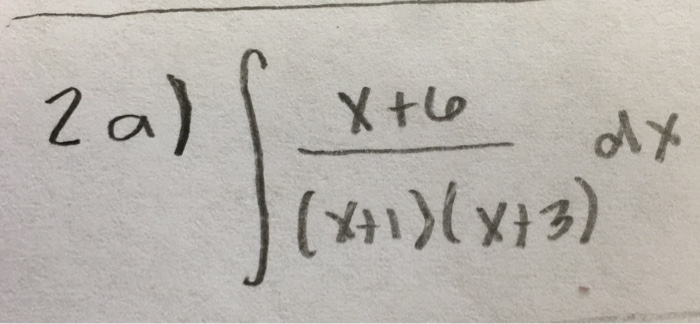 2a) ∫ x+6 / (x+1)(x+3) dx